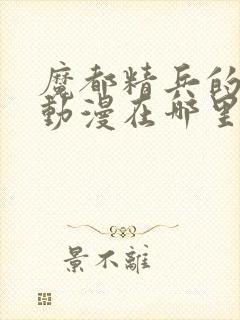 魔都精兵的
動漫在哪里
景不離